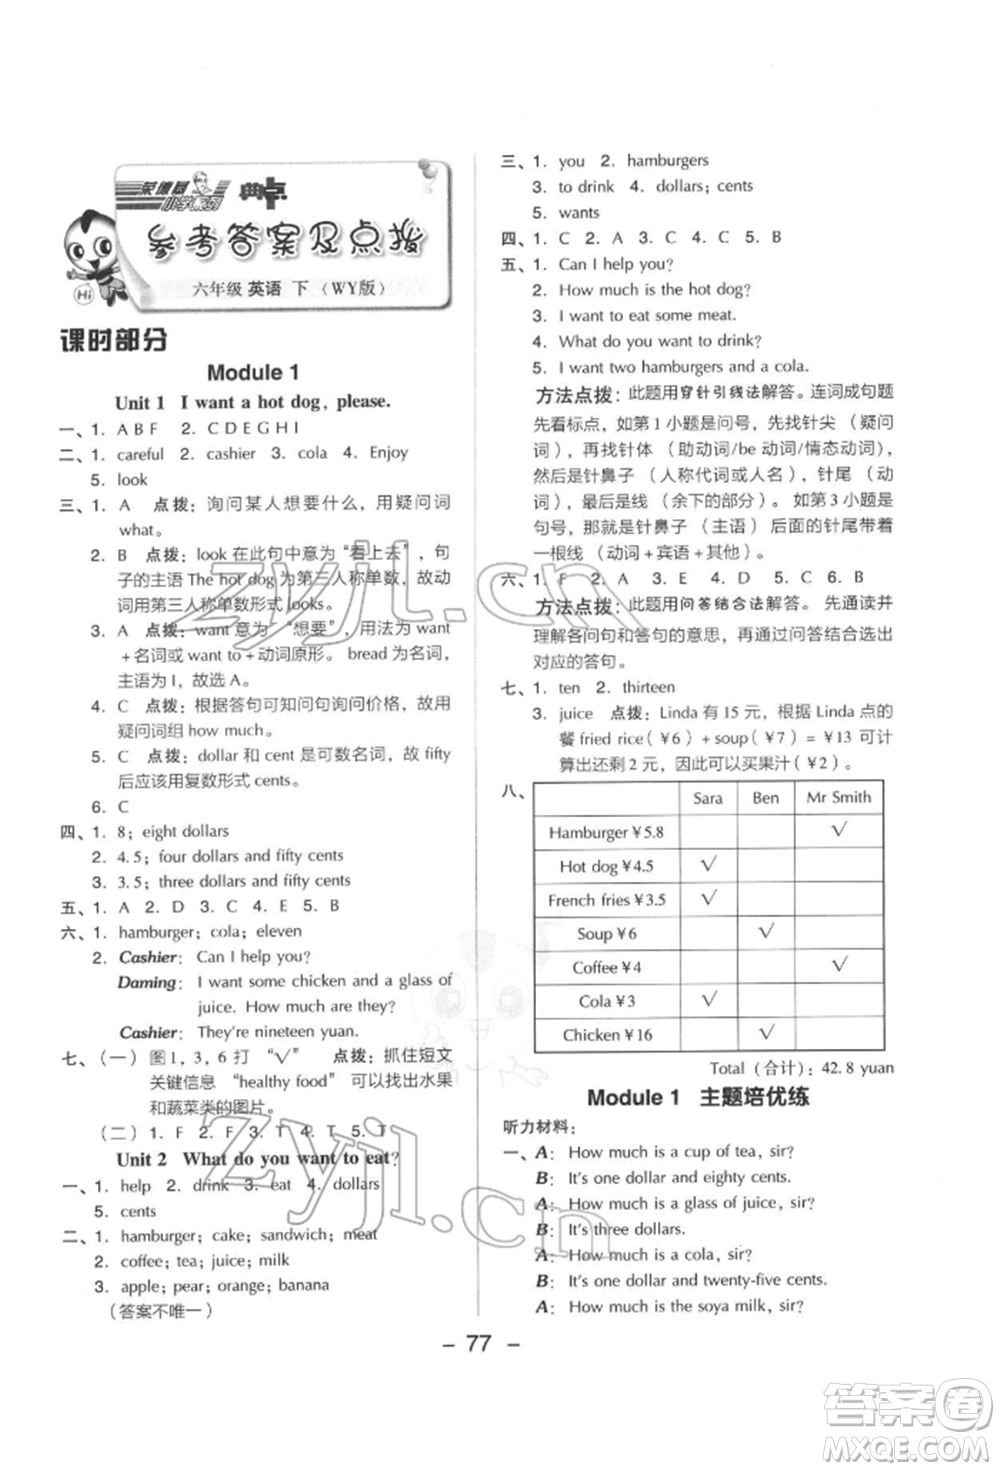 荣德基
小学系列
典点
参考答案及点拨
六年级 英语 下 (WY版)
Hi
课时部分
Module 1
Unit 1 I want a hot dog, please.
一、1. A B F 2. C D E G H I
二、1. careful 2. cashier 3. cola 4. Enjoy
5. look
三、1. A 点拨：询问某人想要什么，用疑问词
what。
2. B 点拨：look在此句中意为“看上去”，句
子的主语 The hot dog 为第三人称单数，故动
词用第三人称单数形式 looks。
3. A 点拨：want 意为“想要”，用法为 want
+名词或 want to+动词原形。bread 为名词，
主语为 I，故选 A。
4. C 点拨：根据答句可知问句询问价格，故用
疑问词组 how much。
5. C 点拨：dollar 和 cent 是可数名词，故 fifty
后应该用复数形式 cents。
6. C
四、1. 8；eight dollars
2. 4.5；four dollars and fifty cents
3. 3.5；three dollars and fifty cents
五、1. A 2. D 3. C 4. E 5. B
六、1. hamburger；cola；eleven
2. Cashier: Can I help you?
Daming: I want some chicken and a glass of
juice. How much are they?
Cashier: They're nineteen yuan.
七、（一）图1，3，6 打“√” 点拨：抓住短文
关键信息“healthy food”可以找出水果
和蔬菜类的图片。
（二）1. F 2. F 3. T 4. T 5. T
Unit 2 What do you want to eat?
一、1. help 2. drink 3. eat 4. dollars
5. cents
二、1. hamburger；cake；sandwich；meat
2. coffee；tea；juice；milk
3. apple；pear；orange；banana
（答案不唯一）
三、1. you 2. hamburgers
3. to drink 4. dollars；cents
5. wants
四、1. C 2. A 3. C 4. C 5. B
五、1. Can I help you?
2. How much is the hot dog?
3. I want to eat some meat.
4. What do you want to drink?
5. I want two hamburgers and a cola.
方法点拨：此题用穿针引线法解答。连词成句题
先看标点，如第 1 小题是问号，先找针尖（疑问
词），再找针体（助动词/be 动词/情态动词），
然后是针鼻子（人称代词或人名），针尾（动
词），最后是线（余下的部分）。如第 3 小题是
句号，那就是针鼻子（主语）后面的针尾带着
一根线（动词+宾语+其他）。
六、1. F 2. A 3. E 4. D 5. C 6. B
方法点拨：此题用问答结合法解答。先通读并
理解各问句和答句的意思，再通过问答结合选出
对应的答句。
七、1. ten 2. thirteen
3. juice 点拨：Linda 有 15 元，根据 Linda 点的
餐 fried rice（￥6）+soup（￥7）=￥13 可计
算出还剩 2 元，因此可以买果汁（￥2）。
八、
Sara Ben Mr Smith
Hamburger￥5.8 √
Hot dog￥4.5 √
French fries￥3.5 √
Soup￥6 √
Coffee￥4 √
Cola￥3 √
Chicken￥16 √
Total（合计）：42.8 yuan
Module 1 主题培优练
听力材料：
一、A: How much is a cup of tea, sir?
B: It's one dollar and eighty cents.
A: How much is a glass of juice, sir?
B: It's three dollars.
A: How much is a cola, sir?
B: It's one dollar and twenty-five cents.
A: How much is the soya milk, sir?
- 77 -
zyjl.cn
zyjl.cn
答案圈
MXQE.COM